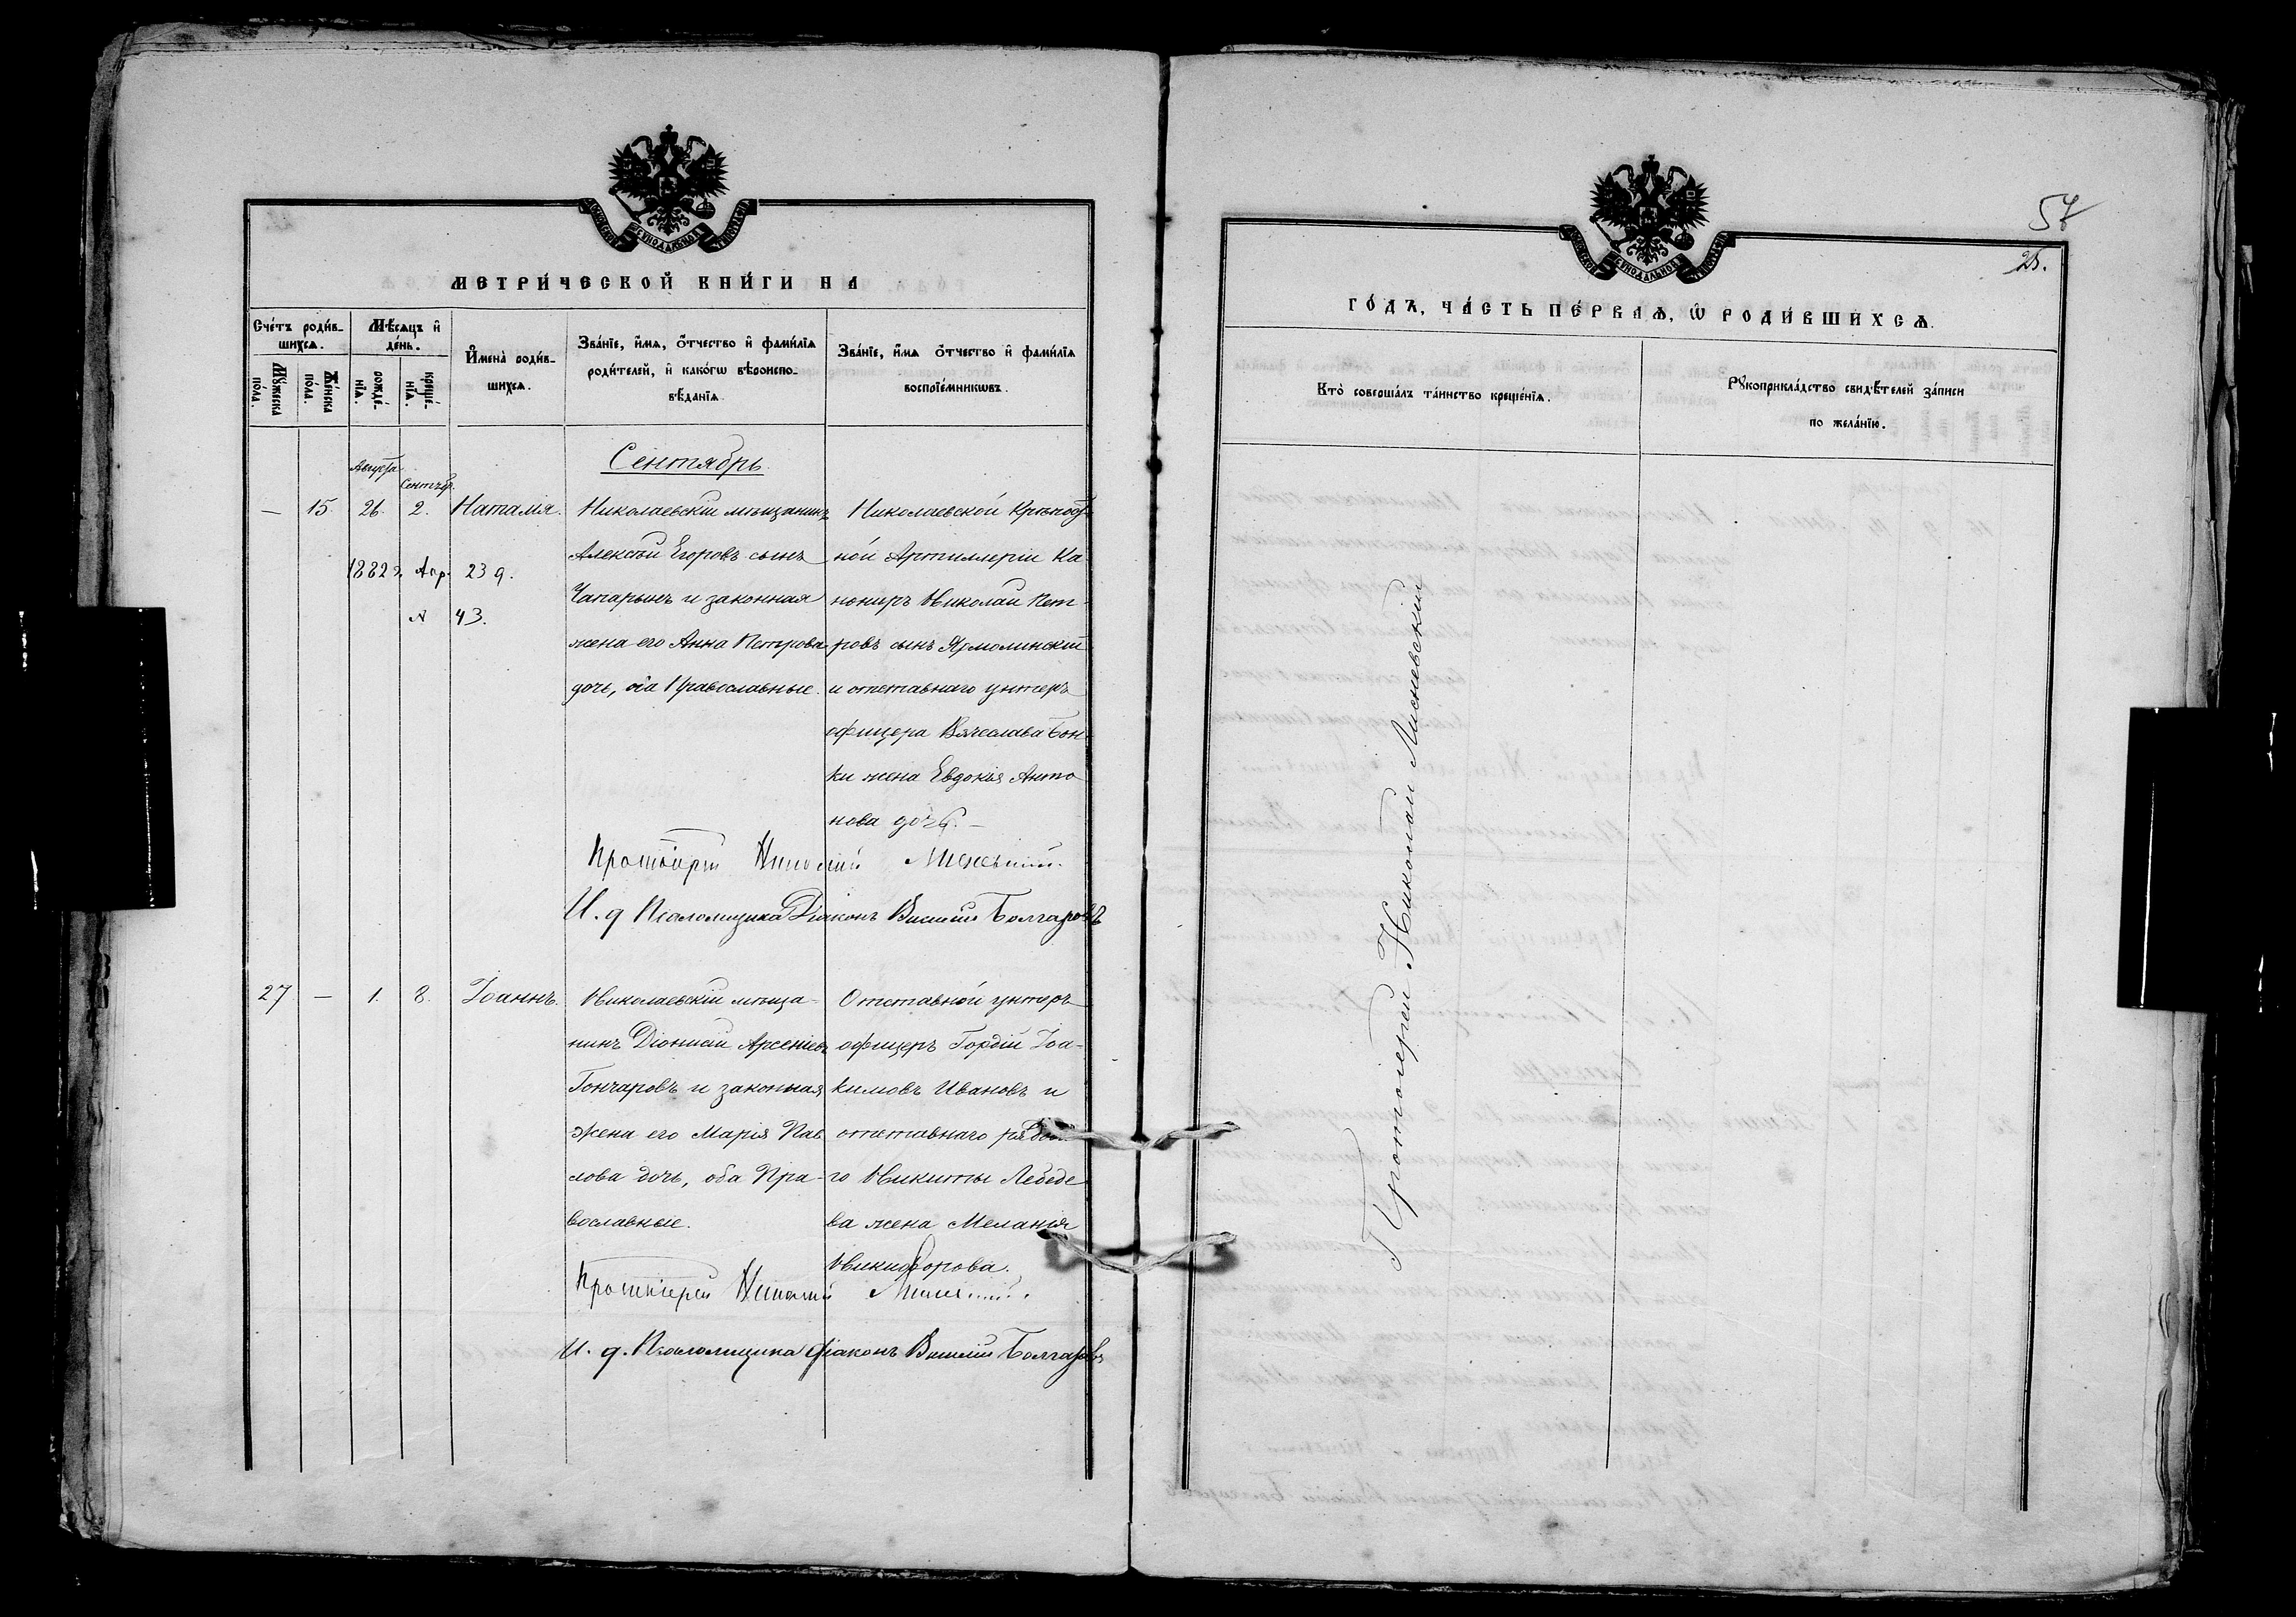 МЕТРИ́ЧЕСКОЙ КНИ́ГИ НА
Сче́тъ роди́в-
шихсѧ.
Мѣ́сѧцъ и҆
де́нь.
Мꙋ́жеска
по́ла.
Же́нска
по́ла.
рожде́-
нїѧ.
креще́-
нїѧ.
И҆мена̀ роди́в-
шихсѧ.
Зва́нїе, и҆́мѧ, ѻ҆́тчество и҆ фами́лїѧ
роди́телей, и҆ како́гѡ вѣроиспо-
вѣ́данїѧ
Зва́нїе, и҆́мѧ ѻ҆́тчество и҆ фами́лїѧ
воспрїе́мникѡвъ.
Сентябрь
Августа
Сентябр.
— 15. 26. 2. Наталія.
1882 г. Апр. 23 д.
№ 43.
Николаевскій мѣщанинъ
Алексѣй Егоровъ сынъ
Чапарынъ и законная
жена его Анна Петрова
дочь, оба Православные.
Николаевской Крѣпост-
ной Артиллеріи Ка
нониръ Николай Пет-
ровъ сынъ Ярмолинскій
и отставнаго унтеръ
офицера Вячеслава Бон-
ки жена Евдокія Анто
нова дочь. —
Протоіерей Николай Мисневскій.
И. д Псаломщика Діаконъ Василій Болгаровъ
27 — 1. 8. Іоаннъ.
Николаевскій мѣща-
нинъ Діонисій Арсеніевъ
Гончаровъ и законная
жена его Марія Пав
лова дочь, оба Пра-
вославные.
Отставной унтеръ
офицеръ Гордій Іоа-
кимовъ Ивановъ и
отставнаго рядова
го Никиты Лебеде
ва жена Меланія
Никифорова.
Протоіерей Николай
И. д. Псаломщика Діаконъ Василій Болгаровъ
57
25.
ГО́ДЪ, ЧА́СТЬ ПЕ́РВАѦ, Ѡ҆ РОДИ́ВШИХСѦ.
Кто̀ соверша́лъ та́инство креще́нїѧ.
Рꙋкоприкла́дство свидѣ́телей за́писи
по жела́нїю.
Протоіерей Николай Мисневскій